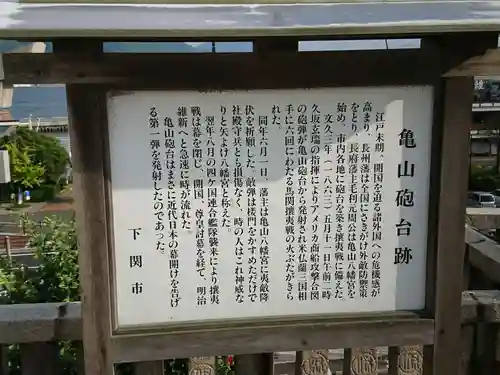 亀山砲台跡
江戸末期、開国を迫る諸外国への危機感が
高まり、長州藩は全国にさきがけ外敵防禦策
をとり、長府藩主毛利元周公は亀山八幡宮を
始め、市内各地に砲台を築き攘夷戦に備えた。
文久三年(一八六三)五月十一日午前二時
久坂玄瑞の指揮によりアメリカ商船攻撃合図
の砲弾が亀山砲台から発射され米仏蘭三国相
手に六回にわたる馬関攘夷戦の火ぶたがきら
れた。
同年六月一日、藩主は亀山八幡宮に夷敵降
伏を祈願した。敵弾は楼門をかすめただけで
社殿守兵とも損傷なく、時の人はこれ神威な
りと矢よけ八幡宮と称えた。
翌年八月の四ケ国連合艦隊襲来により攘夷
戦は幕を閉じ、開国、尊皇討幕を経て、明治
維新へと急速に時代が流れる。
亀山砲台はまさに近代日本の幕開けを告げ
る第一弾を発射したのであった。
下関市